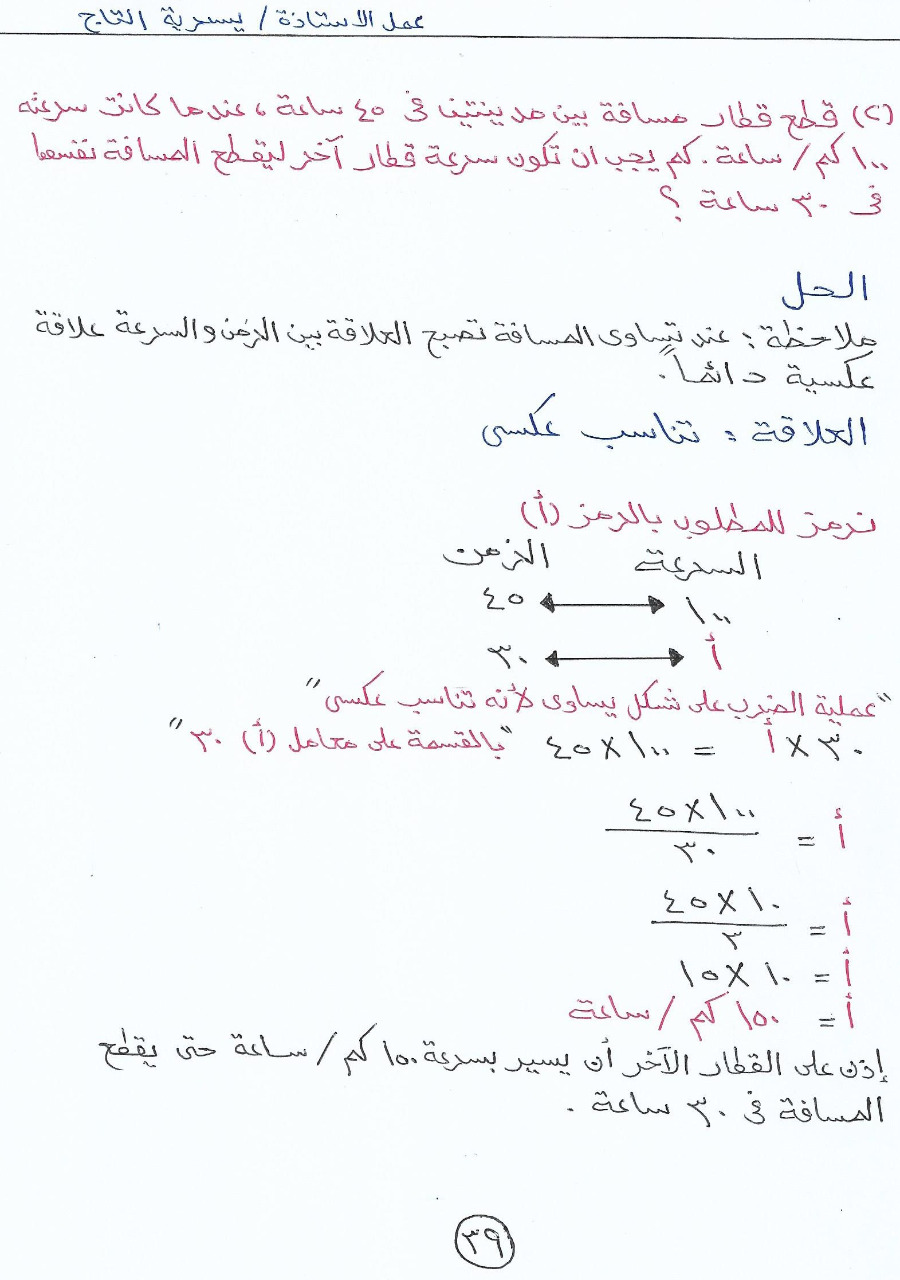 عمل الاستاذة / يسرية التاج
(٢) قطع قطار مسافة بين مدينتين فى ٤٥ ساعة ، عندما كانت سرعته
١٠٠ كم / ساعة . كم يجب ان تكون سرعة قطار آخر ليقطع المسافة نفسها
فى ٣٠ ساعة ؟
الحل
ملاحظة : عند تساوى المسافة تصبح العلاقة بين الزمن والسرعة علاقة
عكسية دائماً .
العلاقة : تناسب عكسى
نرمز للمطلوب بالرمز (أ)
السرعة الزمن
١٠٠ ↔ ٤٥
أ ↔ ٣٠
"عملية الضرب على شكل يساوى لأنه تناسب عكسى"
٣٠ × أ = ١٠٠ × ٤٥ "بالقسمة على معامل (أ) ٣٠"
أ = ١٠٠ × ٤٥
٣٠
أ = ١٠ × ٤٥
٣
أ = ١٠ × ١٥
أ = ١٥٠ كم / ساعة
إذن على القطار الآخر أن يسير بسرعة ١٥٠ كم / ساعة حتى يقطع
المسافة فى ٣٠ ساعة .
٣٩